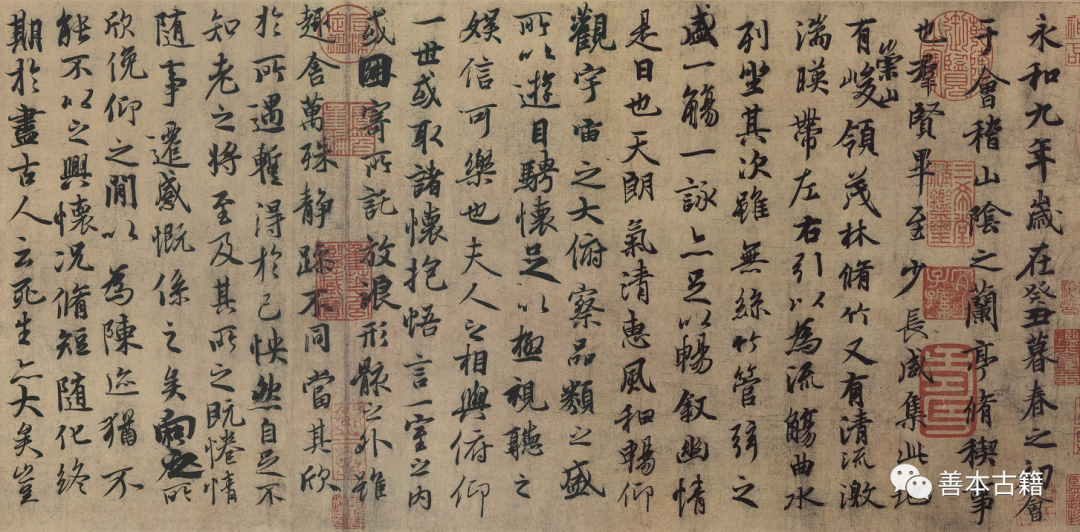 永和九年歲在癸丑暮春之初會
于會稽山陰之蘭亭脩稧事
也羣賢畢至少長咸集此地
有崇山峻領茂林脩竹又有清流激
湍暎帶左右引以為流觴曲水
列坐其次雖無絲竹管弦之
盛一觴一詠亦足以暢敘幽情
是日也天朗氣清惠風和暢仰
觀宇宙之大俯察品類之盛
所以遊目騁懷足以極視聽之
娛信可樂也夫人之相與俯仰
一世或取諸懷抱悟言一室之內
或因寄所託放浪形骸之外雖
趣舍萬殊靜躁不同當其欣
於所遇暫得於己怏然自足不
知老之將至及其所之既惓情
隨事遷感慨係之矣向之所
欣俛仰之閒以為陳迹猶不
能不以之興懷況脩短隨化終
期於盡古人云死生亦大矣豈
善本古籍